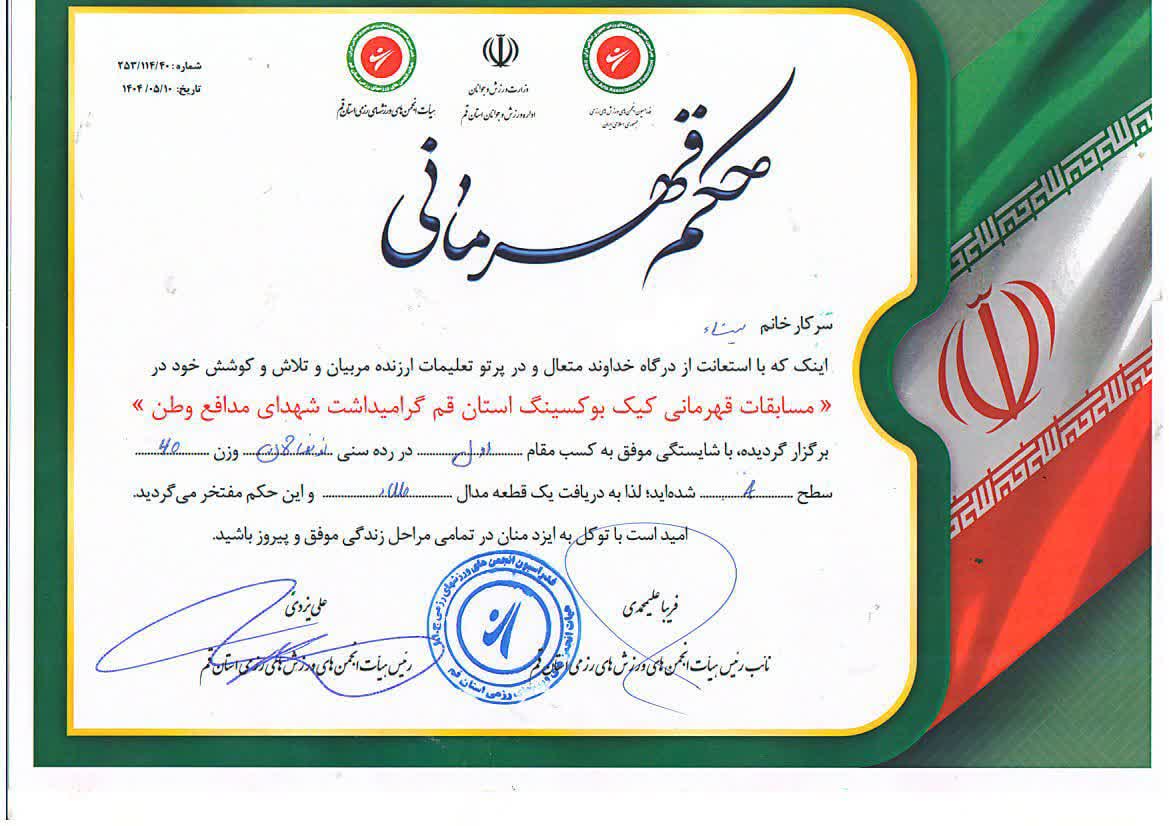 شماره: ۲۵۳/۱۱۴/۴۰
تاریخ: ۱۴۰۴/۰۵/۱۰
هیأت انجمن های ورزشهای رزمی استان قم
وزارت ورزش و جوانان
اداره ورزش و جوانان استان قم
فدراسیون انجمن های ورزش های رزمی
جمهوری اسلامی ایران
حکم قهرمانی
سرکار خانم
اینک که با استعانت از درگاه خداوند متعال و در پرتو تعلیمات ارزنده مربیان و تلاش و کوشش خود در
« مسابقات قهرمانی کیک بوکسینگ استان قم گرامیداشت شهدای مدافع وطن »
برگزار گردیده، با شایستگی موفق به کسب مقام اول در رده سنی نونهالان وزن 40
سطح A شده‌اید؛ لذا به دریافت یک قطعه مدال طلا و این حکم مفتخر می‌گردید.
امید است با توکل به ایزد منان در تمامی مراحل زندگی موفق و پیروز باشید.
فریبا علیمحمدی
نائب رئیس هیأت انجمن های ورزش های رزمی استان قم
علی یزدی
رئیس هیأت انجمن های ورزش های رزمی استان قم